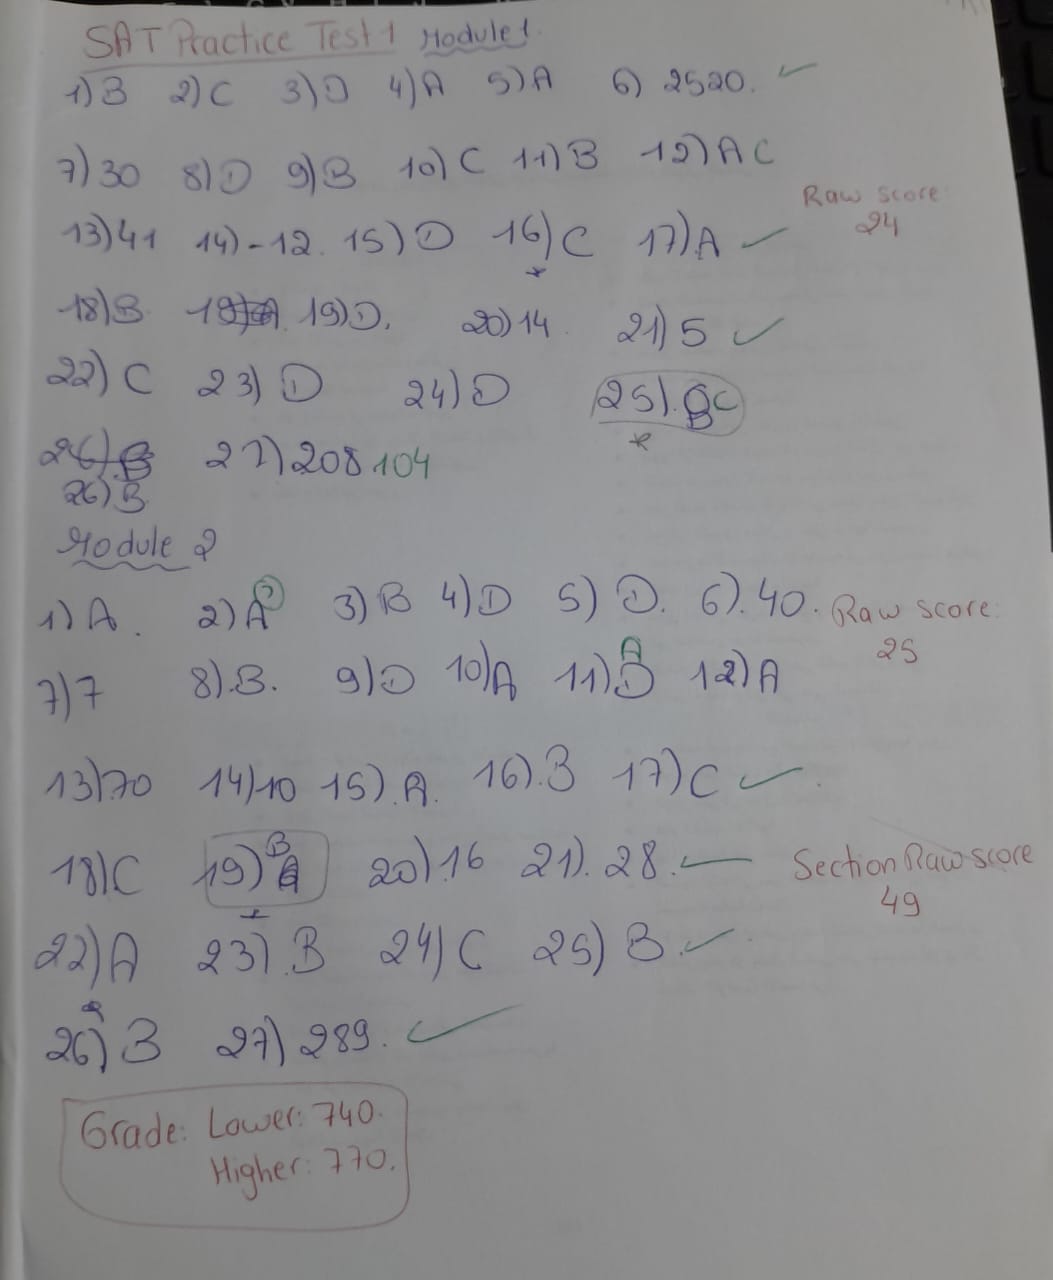 SAT Practice Test 1 Module 1.
1) B 2) C 3) D 4) A 5) A 6) 2520.
7) 30 8) D 9) B 10) C 11) B 12) A C
Raw score:
24
13) 41 14) -12. 15) D 16) C 17) A
18) B. 19) D. 20) 14. 21) 5
22) C 23) D 24) D 25). B C
27) 208 104
26) B
Module 2
1) A. 2) A 3) B 4) D 5) D. 6). 40. Raw score:
25
7) 7 8). B. 9) D 10) A 11) D A 12) A
13) 70 14) 10 15). A. 16). B 17) C
18) C 19) B 20). 16 21). 28. Section Raw score
49
22) A 23). B 24) C 25) B.
26) B 27) 289.
Grade: Lower: 740.
Higher: 770.